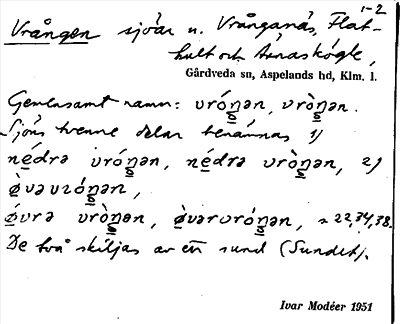 1-2
Vrången sjöar n. Vrånganäs, Flat-
hult och Årnaskógle,
Gårdveda sn, Aspelands hd, Klm. l.
Gemensamt namn: vróŋən, vròŋən.
Sjöns tvenne delar benämnas 1)
nédrə vróŋən, nédrə vròŋən, 2)
ø̀vəvróŋən,
ǿvrə vròŋən, ø̀vərvróŋən, s 22,34,38.
De två skiljas av ett sund (Sundet).
Ivar Modéer 1951